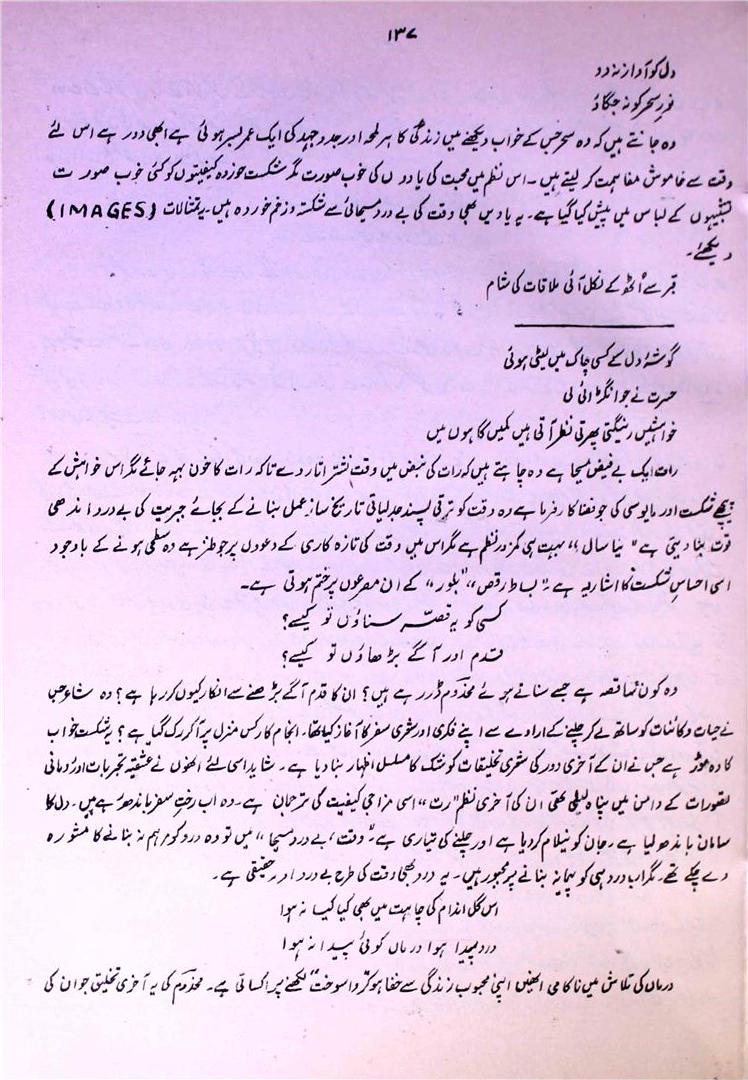 ۱۳۷
دل کو آواز نہ دو
نورِ سحر کو نہ جگاؤ
وہ جانتے ہیں کہ وہ سحر جس کے خواب دیکھنے میں زندگی کا ہر لمحہ اور جدوجہد کی ایک عمر بسر ہوئی ہے ابھی دور ہے اس لئے
وقت سے خاموش مفاہمت کر لیتے ہیں۔ اس نظم میں محبت کی یادوں کی خوب صورت مگر شکست خوردہ کیفیتوں کو کئی خوب صورت
تشبیہوں کے لباس میں پیش کیا گیا ہے۔ یہ یادیں بھی وقت کی بے درد مسیحائی سے شکستہ و زخم خوردہ ہیں۔ یہ تمثالات (IMAGES)
دیکھئے۔
قبر سے اُٹھ کے نکل آئی ملاقات کی شام
گوشۂ دل سے کسی چاک میں لپٹی ہوئی
حسرت نے جو انگڑائی لی
خواہشیں رینگتی پھرتی نظر آتی ہیں کمیں گاہوں میں
رات ایک بے فیض مسیحا ہے وہ چاہتے ہیں کہ رات کی نبض میں وقت نشتر اتار دے تاکہ رات کا خون بہہ جائے مگر اس خواہش کے
پیچھے شکست اور مایوسی کی جو فضا کارفرما ہے وہ وقت کو ترقی پسند جدلیاتی تاریخ ساز عمل بنانے کے بجائے جبریت کی بے درد اندھی
قوت بنا دیتی ہے "نیا سال" بہت ہی کمزور نظم ہے مگر اس میں وقت کی تازہ کاری کے دعووں پر جو طنز ہے وہ سطحی ہونے کے باوجود
اسی احساس شکست کا اشاریہ ہے۔ "بساط رقص"، "بلور" کے ان مصرعوں پر ختم ہوتی ہے۔
کسی کو یہ قصّہ سناؤں تو کیسے؟
قدم اور آگے بڑھاؤں تو کیسے؟
وہ کون سا قصہ ہے جسے سناتے ہوئے مخدوم ڈر رہے ہیں؟ ان کا قدم آگے بڑھنے سے انکار کیوں کر رہا ہے؟ وہ شاعر جس
نے حیات و کائنات کو ساتھ لے کر چلنے کے ارادے سے اپنے فکری اور شعری سفر کا آغاز کیا تھا۔ انجام کار کس منزل پر آ کر رک گیا ہے؟ یہ شکست خواب
کا وہ موڑ ہے جس نے ان کے آخری دور کی شعری تخلیقات کو شک کا مسلسل اظہار بنا دیا ہے۔ شاید اسی لئے انھوں نے عشقیہ تجربات اور رومانی
تصورات کے دامن میں پناہ لے لی تھی ان کی آخری نظم "رت" اسی مزاجی کیفیت کی ترجمان ہے۔ وہ اب رختِ سفر باندھ رہے ہیں۔ دل کا
سامان باندھ لیا ہے۔ جان کو نیلام کر دیا ہے اور چلنے کی تیاری ہے۔ "وقت، بے درد مسیحا" میں تو وہ درد کو مرہم نہ بنانے کا مشورہ
دے چکے تھے۔ مگر اب درد ہی کو پیمانہ بنانے پر مجبور ہیں۔ یہ درد بھی وقت کی طرح بے درد اور حقیقی ہے۔
اس گل اندام کی چاہت میں بھی کیا کیا نہ ہوا
درد پیدا ہوا درماں کوئی پیدا نہ ہوا
درماں کی تلاش میں ناکامی انھیں اپنی محبوب زندگی سے خفا ہو کر "واسوخت" لکھنے پر اکساتی ہے۔ مخدوم کی یہ آخری تخلیق جو ان کی